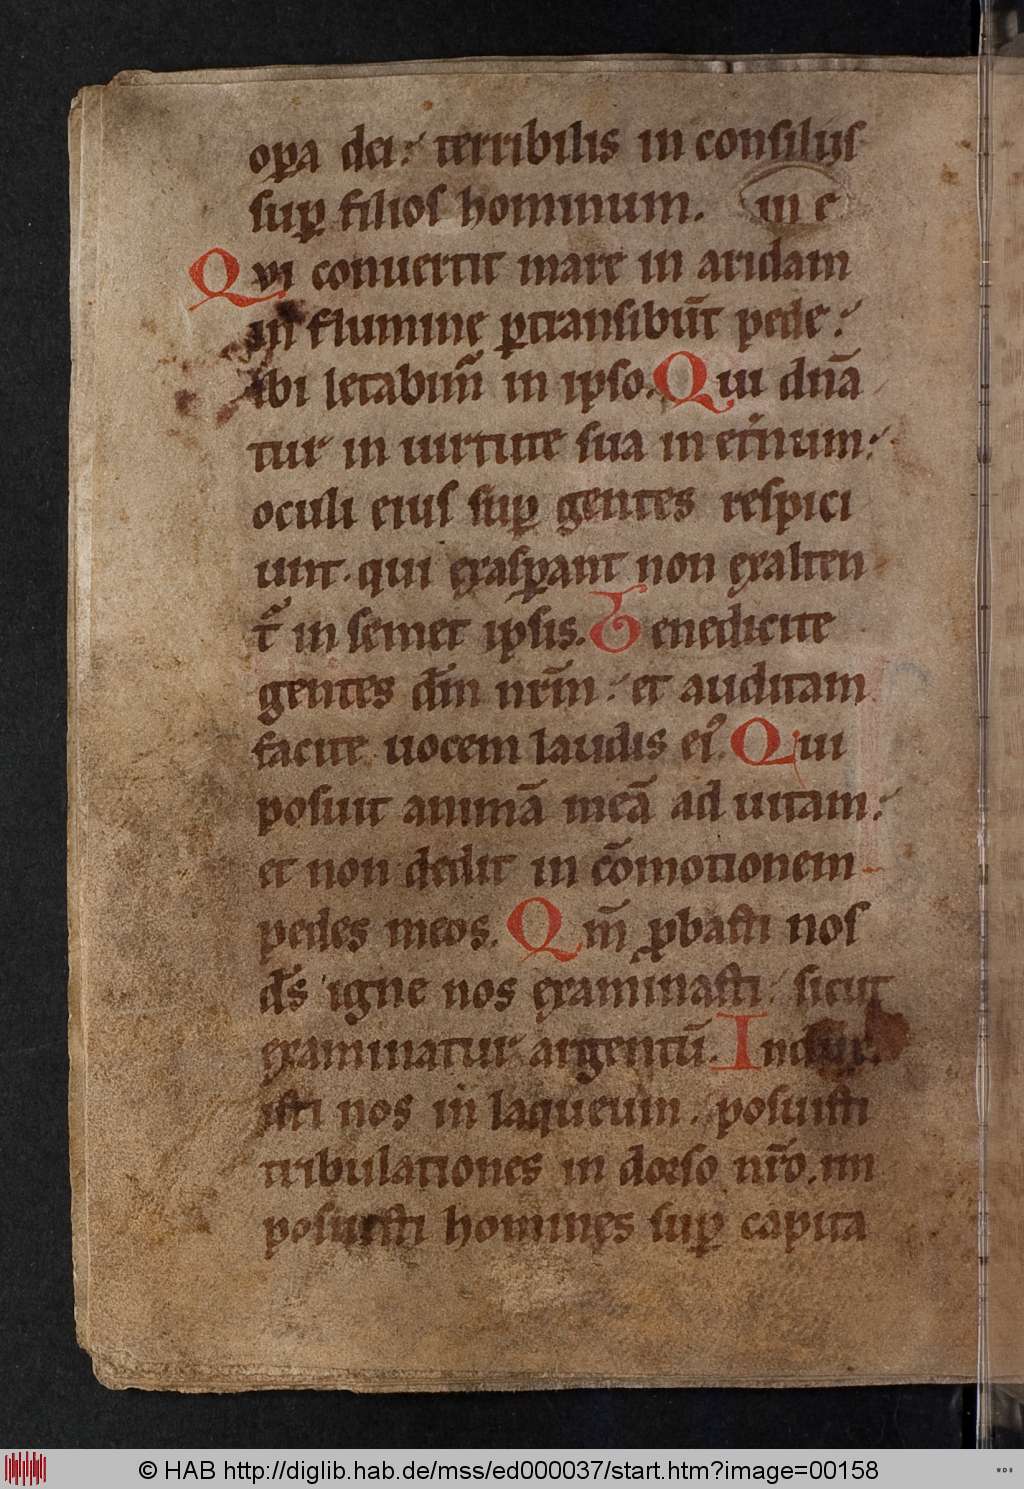 oꝑa dei: terribilis in consiliis
suꝑ filios hominum. in e
Qvi conuertit mare in aridam
in flumine ꝑtransibūt pede:
ibi letabim᷑ in ipso. Qui dn̄a
tur in uirtute sua in et̄num:
oculi eius suꝑ gentes respici
unt. qui exasꝑant non exalten
t᷑ in semet ipsis. Benedicite
gentes dn̄m nr̄m: et auditam
facite uocem laudis ei᷒. Qui
posuit animā meā ad uitam:
et non dedit in cōmotionem
pedes meos. Qm̄ ꝓbasti nos
ds̄ igne nos examinasti: sicut
examinatur argentū. Indux
isti nos in laqueum. posuisti
tribulationes in dorso nr̄o. im
posuisti homines suꝑ capita
© HAB http://diglib.hab.de/mss/ed000037/start.htm?image=00158